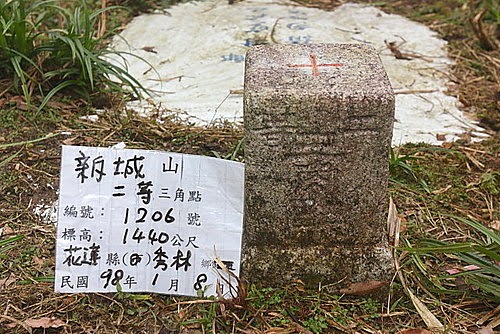 新城山
二等三角點
編號：1206號
標高：1440公尺
花蓮縣(市)秀林鄉
民國98年1月8